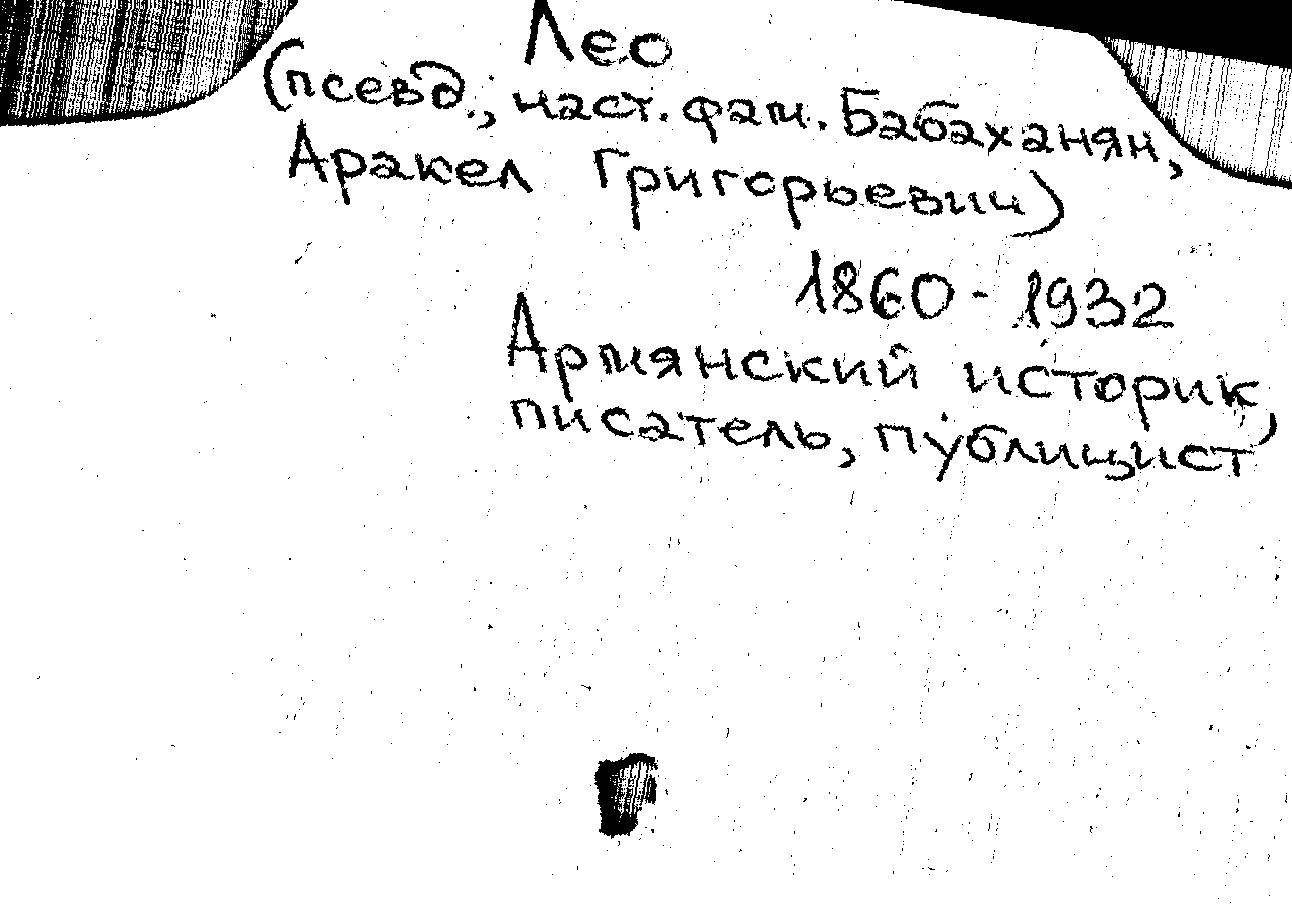 Лео
(псевд., наст. фам. Бабаханян,
Аракел Григорьевич)
1860 - 1932
Армянский историк,
писатель, публицист